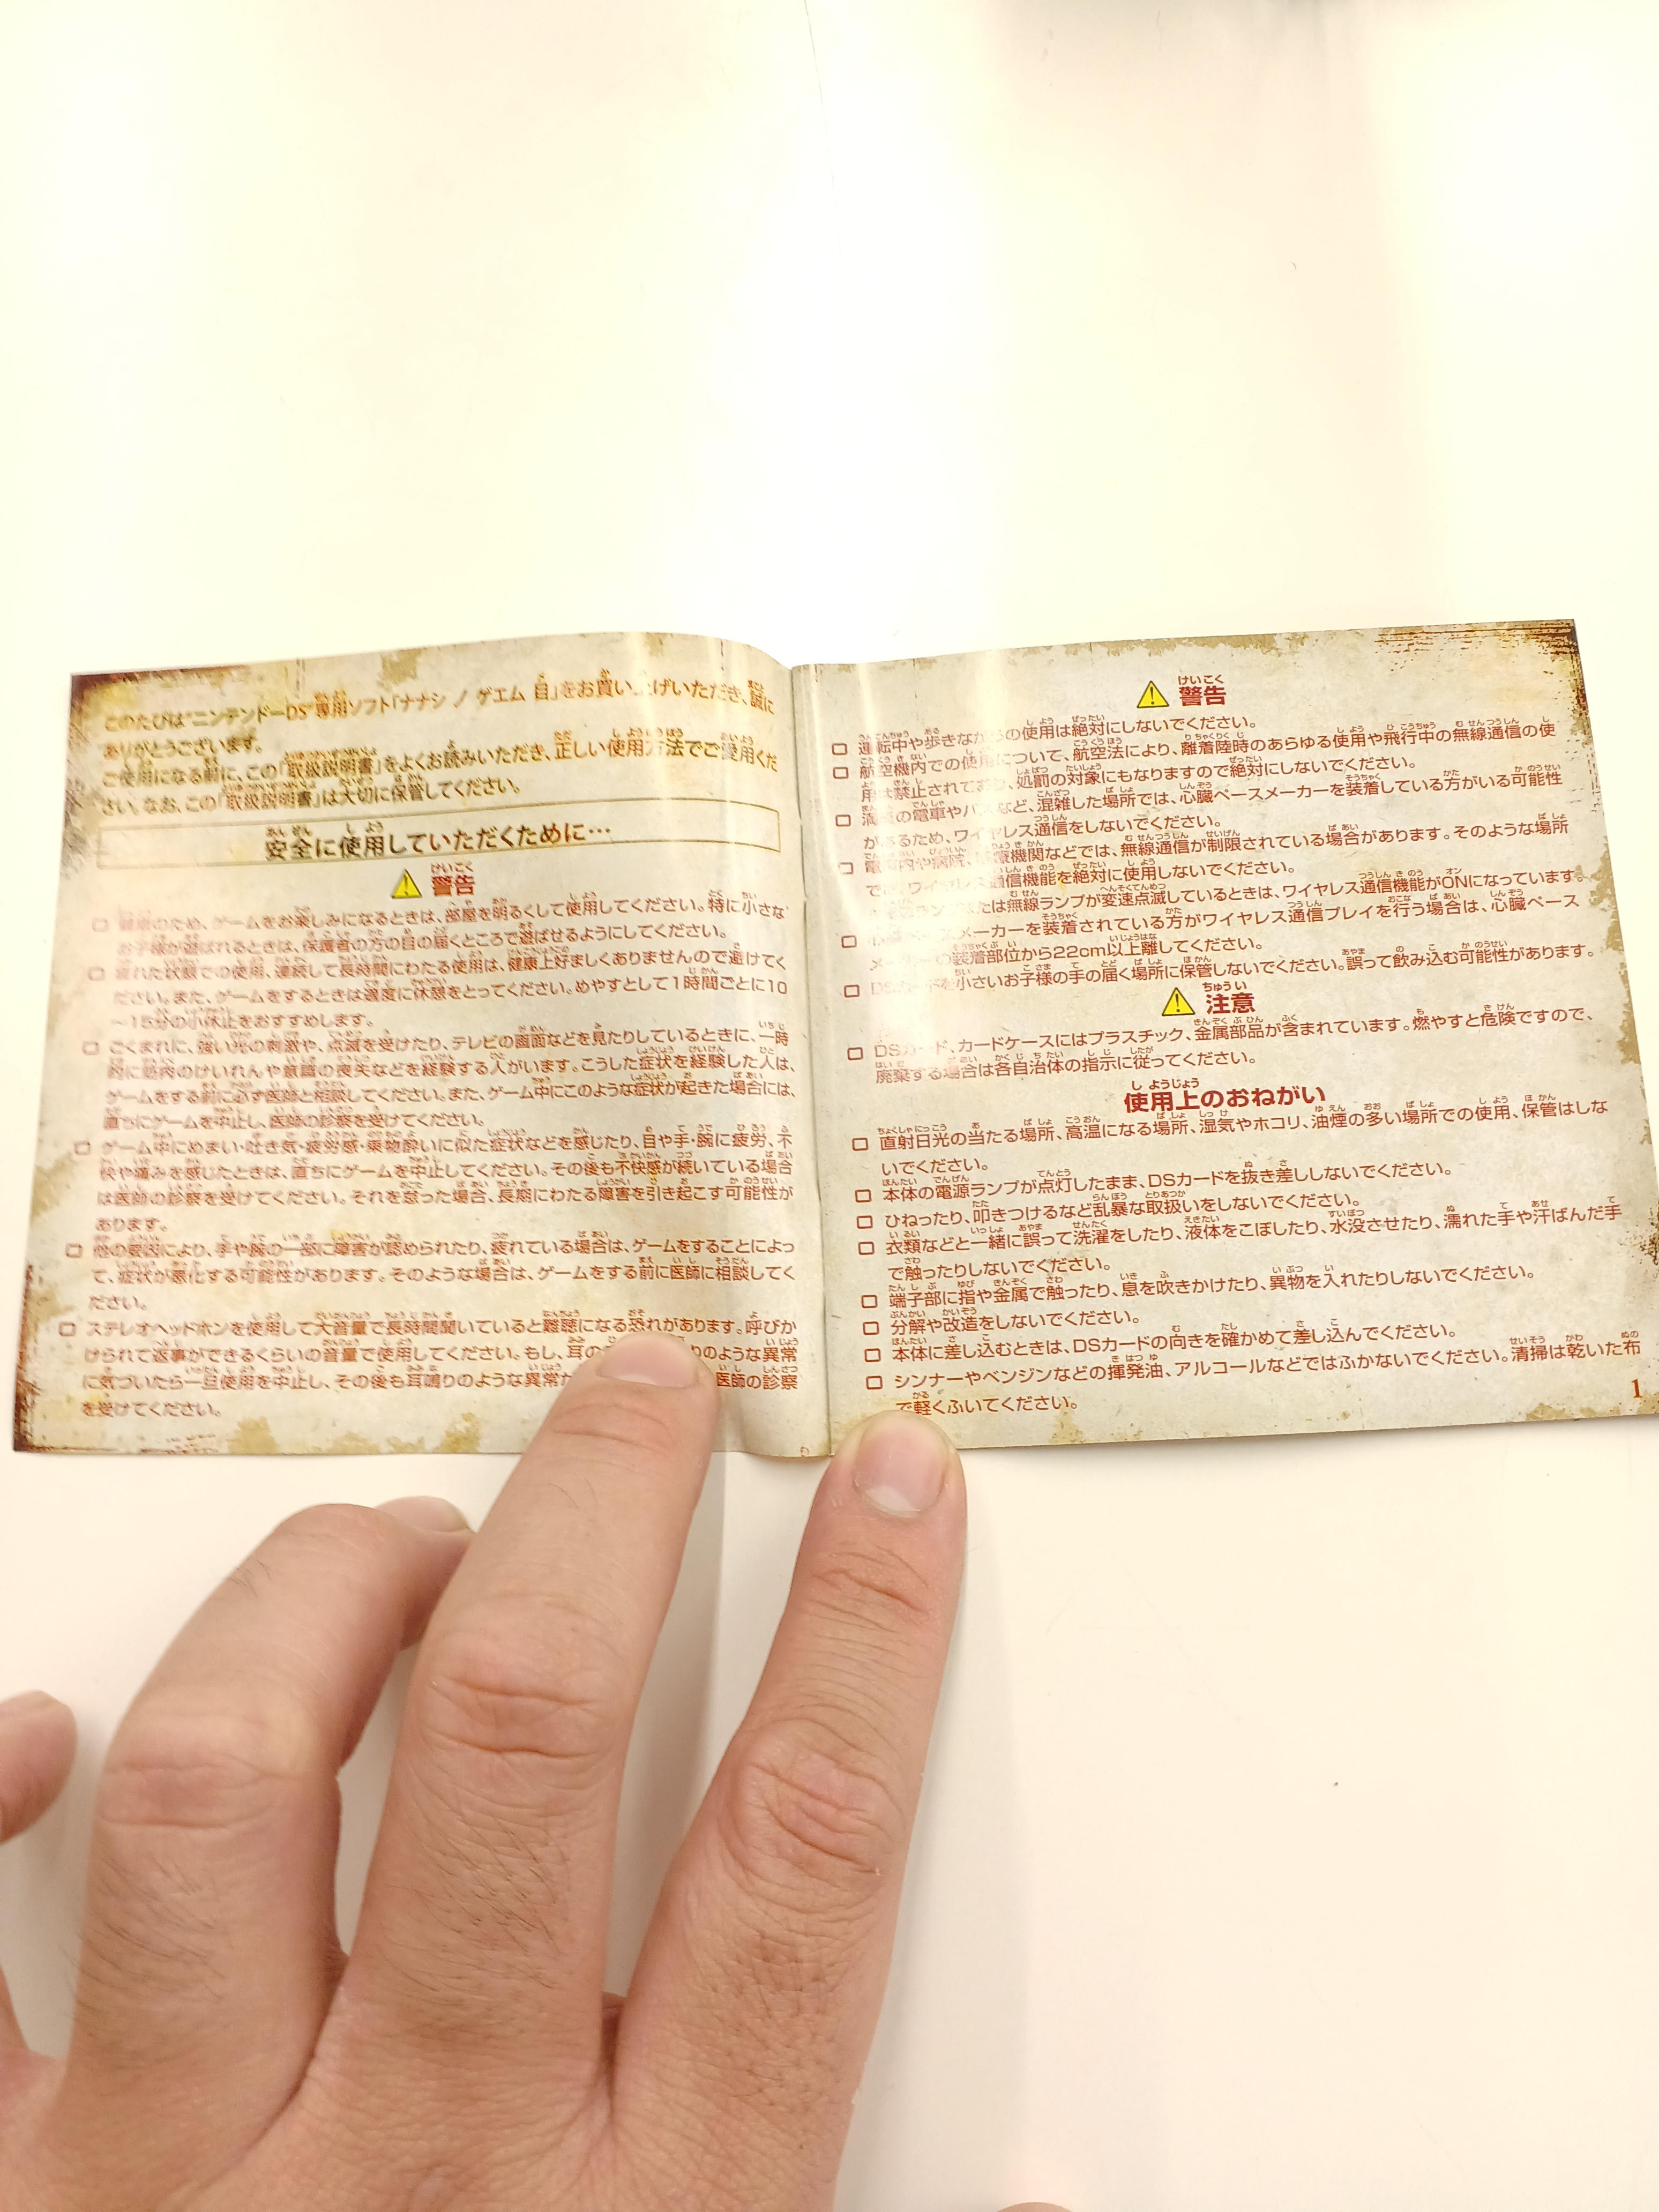 このたびは"ニンテンドーDS"専用ソフト「ナナシ ノ ゲエム 目」をお買い上げいただき、誠に
ありがとうございます。
ご使用になる前に、この「取扱説明書」をよくお読みいただき、正しい使用方法でご愛用くだ
さい。なお、この「取扱説明書」は大切に保管してください。
安全に使用していただくために…
警告
健康のため、ゲームをお楽しみになるときは、部屋を明るくして使用してください。特に小さな
お子様が遊ばれるときは、保護者の方の目の届くところで遊ばせるようにしてください。
疲れた状態での使用、連続して長時間にわたる使用は、健康上好ましくありませんので避けてく
ださい。また、ゲームをするときは適度に休憩をとってください。めやすとして1時間ごとに10
～15分の小休止をおすすめします。
ごくまれに、強い光の刺激や、点滅を受けたり、テレビの画面などを見たりしているときに、一時
的に筋肉のけいれんや意識の喪失などを経験する人がいます。こうした症状を経験した人は、
ゲームをする前に必ず医師と相談してください。また、ゲーム中にこのような症状が起きた場合には、
直ちにゲームを中止し、医師の診察を受けてください。
ゲーム中にめまい・吐き気・疲労感・乗物酔いに似た症状などを感じたり、目や手・腕に疲労、不
快や痛みを感じたときは、直ちにゲームを中止してください。その後も不快感が続いている場合
は医師の診察を受けてください。それを怠った場合、長期にわたる障害を引き起こす可能性が
あります。
他の要因により、手や腕の一部に障害が認められたり、疲れている場合は、ゲームをすることによっ
て、症状が悪化する可能性があります。そのような場合は、ゲームをする前に医師に相談してく
ださい。
ステレオヘッドホンを使用して大音量で長時間聞いていると難聴になる恐れがあります。呼びか
けられて返事ができるくらいの音量で使用してください。もし、耳の りのような異常
に気づいたら一旦使用を中止し、その後も耳鳴りのような異常 医師の診察
を受けてください。
警告
運転中や歩きながらの使用は絶対にしないでください。
航空機内での使用について、航空法により、離着陸時のあらゆる使用や飛行中の無線通信の使
用は禁止されており、処罰の対象にもなりますので絶対にしないでください。
満員の電車やバスなど、混雑した場所では、心臓ペースメーカーを装着している方がいる可能性
があるため、ワイヤレス通信をしないでください。
電車内や病院、医療機関などでは、無線通信が制限されている場合があります。そのような場所
では、ワイヤレス通信機能を絶対に使用しないでください。
ランプまたは無線ランプが変速点滅しているときは、ワイヤレス通信機能がONになっています。
心臓ペースメーカーを装着されている方がワイヤレス通信プレイを行う場合は、心臓ペース
メーカーの装着部位から22cm以上離してください。
DSカードを小さいお子様の手の届く場所に保管しないでください。誤って飲み込む可能性があります。
注意
DSカード、カードケースにはプラスチック、金属部品が含まれています。燃やすと危険ですので、
廃棄する場合は各自治体の指示に従ってください。
使用上のおねがい
直射日光の当たる場所、高温になる場所、湿気やホコリ、油煙の多い場所での使用、保管はしな
いでください。
本体の電源ランプが点灯したまま、DSカードを抜き差ししないでください。
ひねったり、叩きつけるなど乱暴な取扱いをしないでください。
衣類などと一緒に誤って洗濯をしたり、液体をこぼしたり、水没させたり、濡れた手や汗ばんだ手
で触ったりしないでください。
端子部に指や金属で触ったり、息を吹きかけたり、異物を入れたりしないでください。
分解や改造をしないでください。
本体に差し込むときは、DSカードの向きを確かめて差し込んでください。
シンナーやベンジンなどの揮発油、アルコールなどではふかないでください。清掃は乾いた布
で軽くふいてください。
1